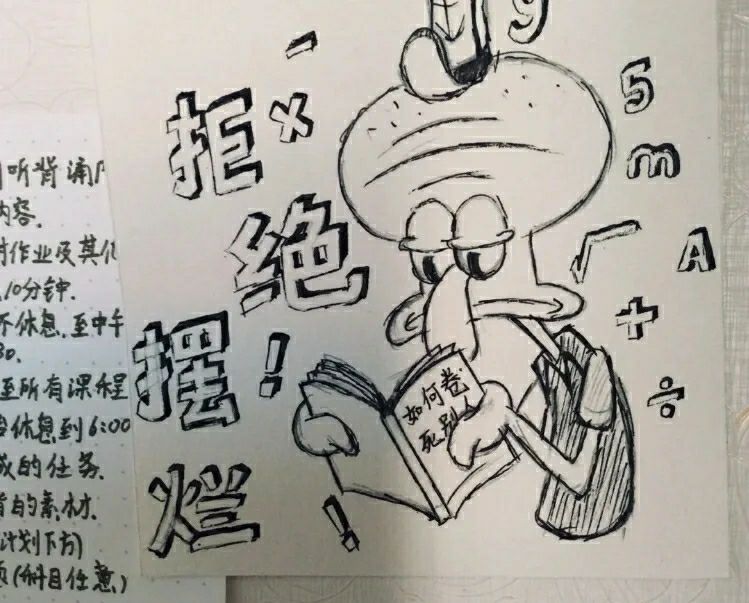 听背诵
内容.
作业及其他
10分钟.
不休息.至中午
30.
至所有课程
休息到6:00
成的任务.
背的素材.
计划下方)
(科目任意)
拒
绝
摆
烂
!
!
-
×
9
5
m
√
A
+
÷
如何卷
死别人